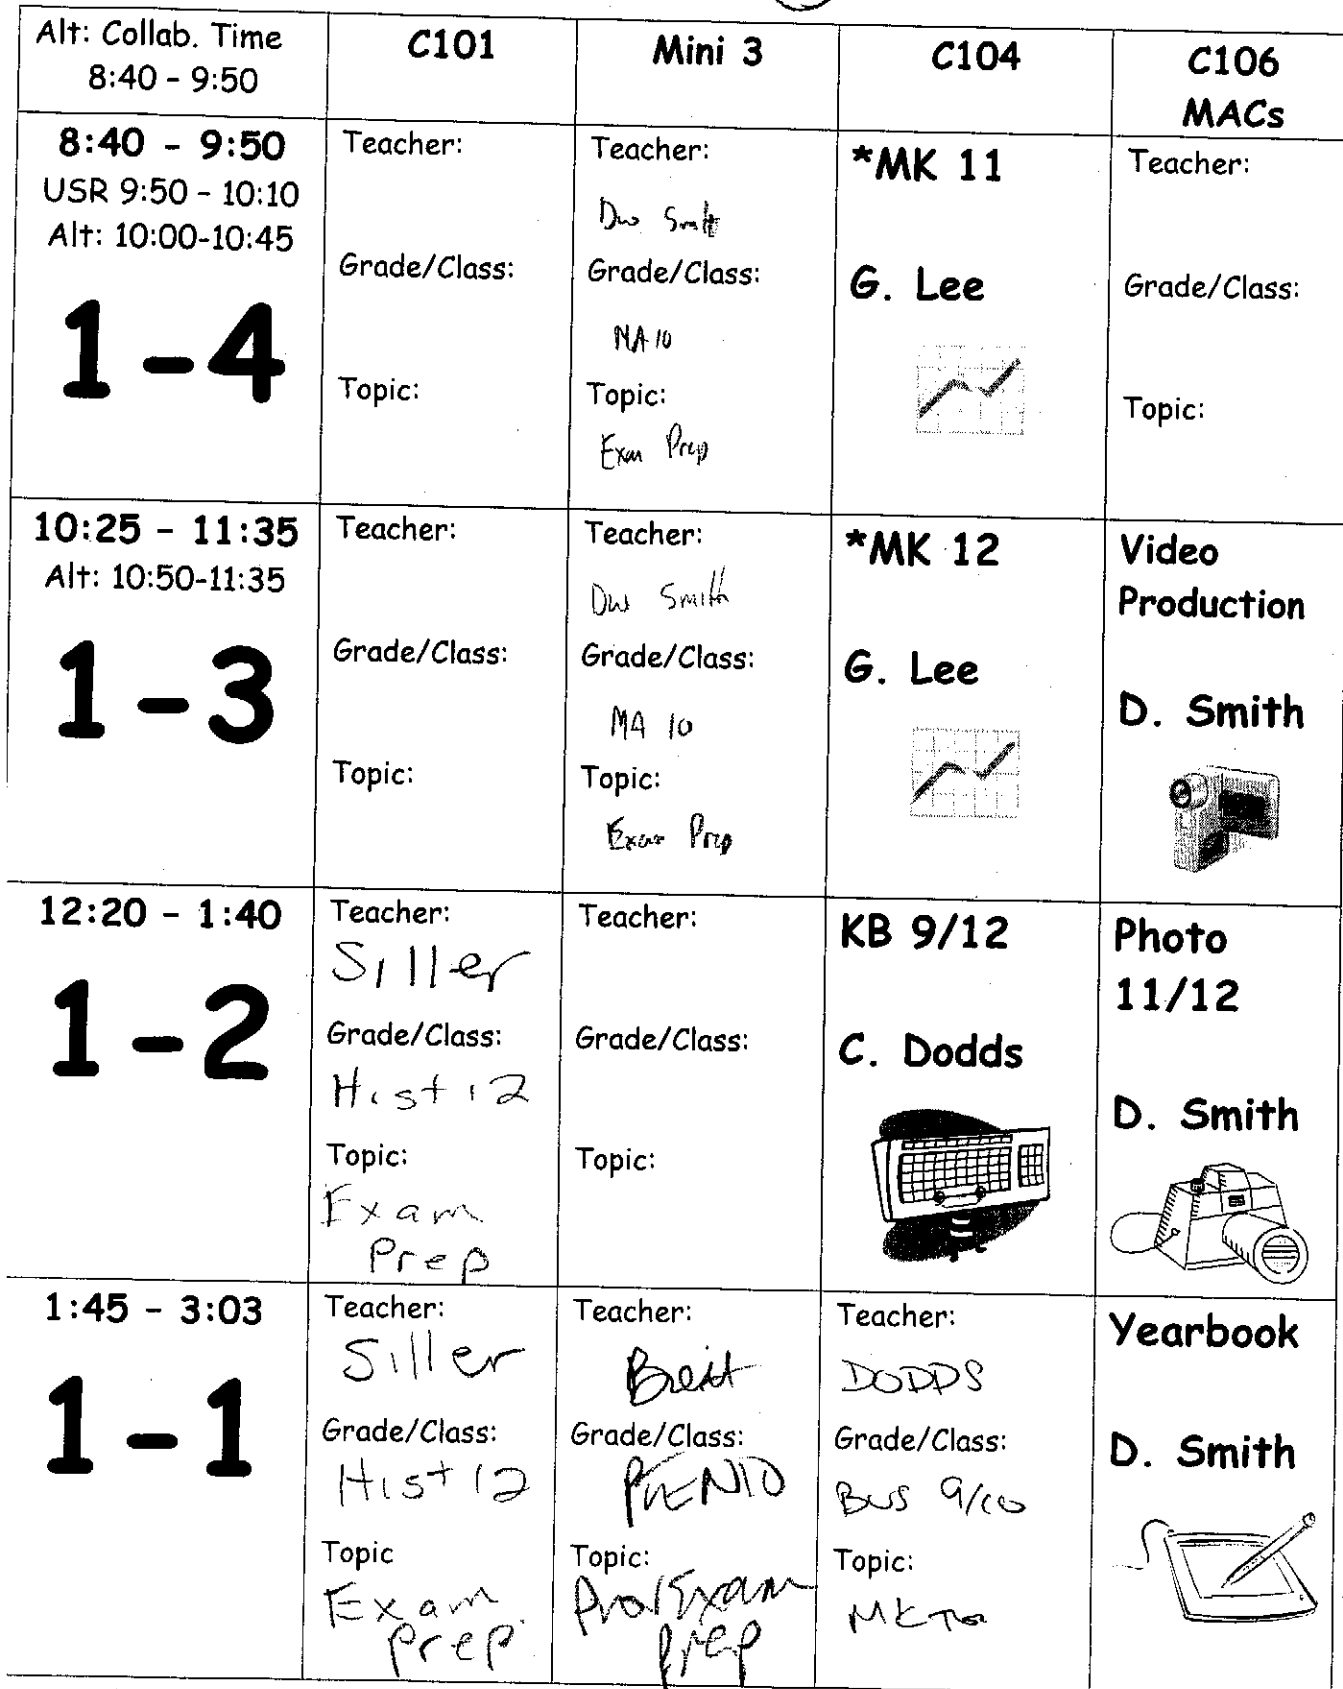 Alt: Collab. Time
8:40 - 9:50
C101
Mini 3
C104
C106
MACs
8:40 - 9:50
USR 9:50 - 10:10
Alt: 10:00-10:45
1 - 4
Teacher:
Grade/Class:
Topic:
Teacher:
Dw Smith
Grade/Class:
MA 10
Topic:
Exam Prep
*MK 11
G. Lee
Teacher:
Grade/Class:
Topic:
10:25 - 11:35
Alt: 10:50-11:35
1 - 3
Teacher:
Grade/Class:
Topic:
Teacher:
Dw Smith
Grade/Class:
MA 10
Topic:
Exam Prep
*MK 12
G. Lee
Video
Production
D. Smith
12:20 - 1:40
1 - 2
Teacher:
Siller
Grade/Class:
Hist 12
Topic:
Exam
Prep
Teacher:
Grade/Class:
Topic:
KB 9/12
C. Dodds
Photo
11/12
D. Smith
1:45 - 3:03
1 - 1
Teacher:
Siller
Grade/Class:
Hist 12
Topic
Exam
prep
Teacher:
Grade/Class:
Topic:
Exam
prep
Teacher:
DODDS
Grade/Class:
BUS 9/10
Topic:
Yearbook
D. Smith